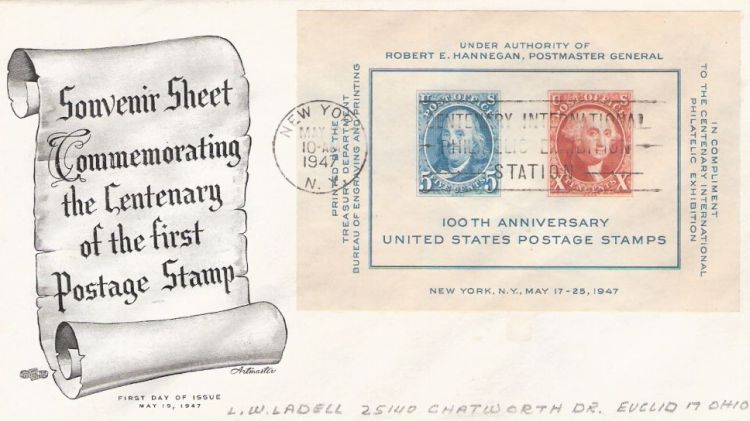 Souvenir Sheet
Commemorating
the Centenary
of the first
Postage Stamp
Artmaster
FIRST DAY OF ISSUE
MAY 19, 1947
UNDER AUTHORITY OF
ROBERT E. HANNEGAN, POSTMASTER GENERAL
PRINTED BY THE
TREASURY DEPARTMENT
BUREAU OF ENGRAVING AND PRINTING
NEW YORK
MAY
10-AM
1947
N.Y.
CENTENARY INTERNATIONAL
PHILATELIC EXHIBITION
STATION
U S
POST OFFICE
5 FIVE CENTS 5
U S
POST OFFICE
X TEN CENTS X
100TH ANNIVERSARY
UNITED STATES POSTAGE STAMPS
IN COMPLIMENT
TO THE CENTENARY INTERNATIONAL
PHILATELIC EXHIBITION
NEW YORK, N.Y., MAY 17-25, 1947
L.W. LADELL 25140 CHATWORTH DR. EUCLID 17 OHIO